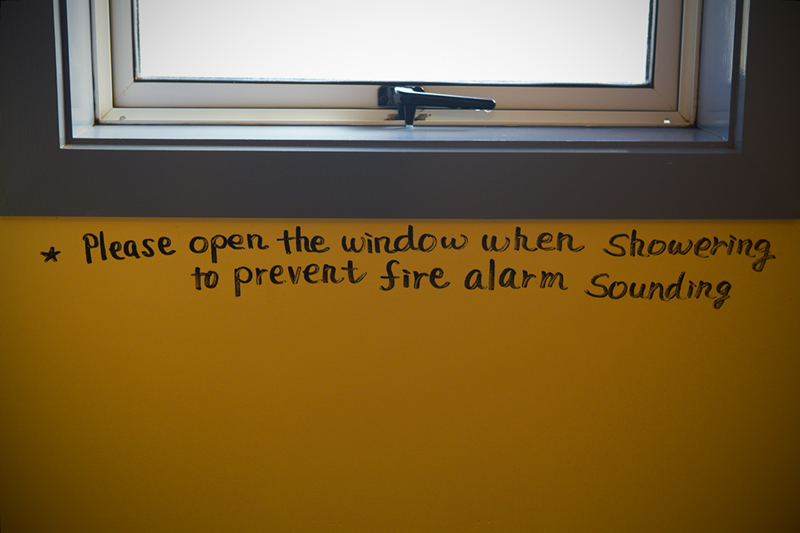 ★ Please open the window when Showering
to prevent fire alarm Sounding